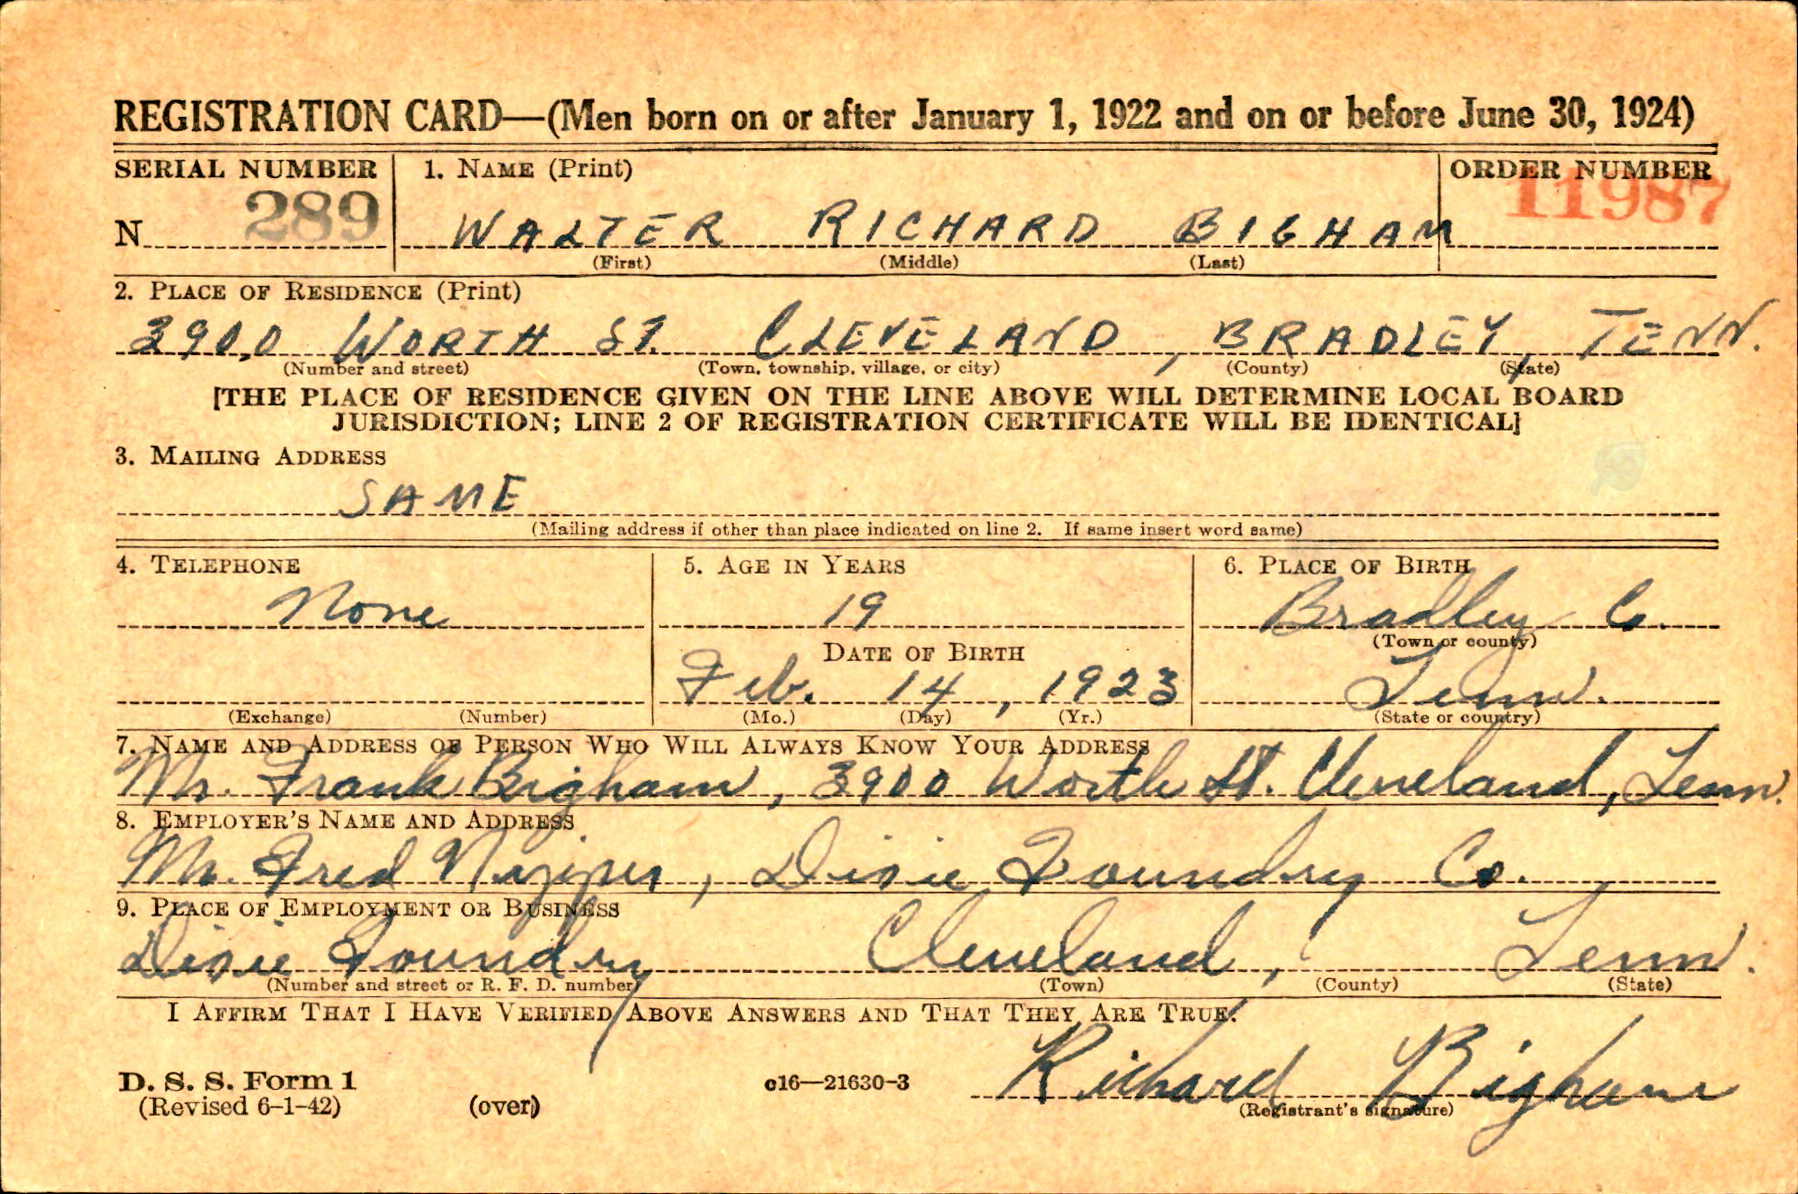 REGISTRATION CARD—(Men born on or after January 1, 1922 and on or before June 30, 1924)
SERIAL NUMBER
1. NAME (Print)
ORDER NUMBER
N 289
WALTER RICHARD BIGHAM
11987
(First) (Middle) (Last)
2. PLACE OF RESIDENCE (Print)
3900 WORTH ST. CLEVELAND, BRADLEY, TENN.
(Number and street) (Town, township, village, or city) (County) (State)
[THE PLACE OF RESIDENCE GIVEN ON THE LINE ABOVE WILL DETERMINE LOCAL BOARD
JURISDICTION; LINE 2 OF REGISTRATION CERTIFICATE WILL BE IDENTICAL]
3. MAILING ADDRESS
SAME
(Mailing address if other than place indicated on line 2. If same insert word same)
4. TELEPHONE
5. AGE IN YEARS
6. PLACE OF BIRTH
None
19
Bradley Co.
(Town or county)
DATE OF BIRTH
Feb. 14, 1923
Tenn.
(Exchange) (Number)
(Mo.) (Day) (Yr.)
(State or country)
7. NAME AND ADDRESS OF PERSON WHO WILL ALWAYS KNOW YOUR ADDRESS
Mr. Frank Bigham, 3900 Worth St. Cleveland, Tenn.
8. EMPLOYER'S NAME AND ADDRESS
Mr. Fred , Dixie Foundry Co.
9. PLACE OF EMPLOYMENT OR BUSINESS
Dixie Foundry Cleveland, Tenn.
(Number and street or R. F. D. number) (Town) (County) (State)
I AFFIRM THAT I HAVE VERIFIED ABOVE ANSWERS AND THAT THEY ARE TRUE.
D. S. S. Form 1
(Revised 6-1-42)
(over)
c16—21630-3
Richard Bigham
(Registrant's signature)